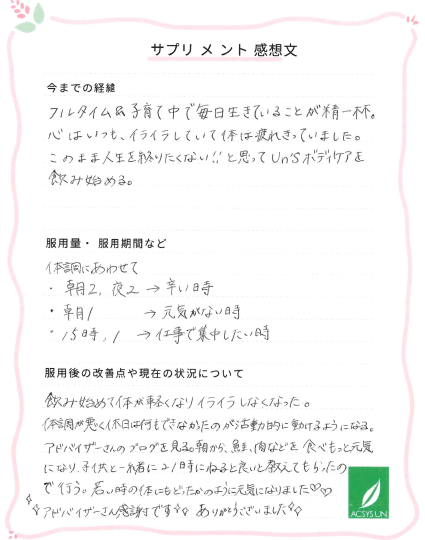 サプリメント感想文
今までの経緯
フルタイム&子育て中で毎日生きていることが精一杯。
心はいつも、イライラしていて体は疲れきっていました。
このまま人生を終りたくない!!と思ってUn'sボディケアを
飲み始める。
服用量・服用期間など
体調にあわせて
・朝2, 夜2 → 辛い時
・朝1 → 元気がない時
・15時, 1 → 仕事で集中したい時
服用後の改善点や現在の状況について
飲み始めて体が軽くなりイライラしなくなった。
体調が悪く休日は何もできなかったのが活動的に動けるようになる。
アドバイザーさんのブログを見る。朝から、鮭、肉などを食べもっと元気
になり、子供と一緒に21時にねると良いと教えてもらったの
で行う。若い時の体にもどったかのように元気になりました♡♡
アドバイザーさん感謝です✨ ありがとうございました✨
ACSYS UN